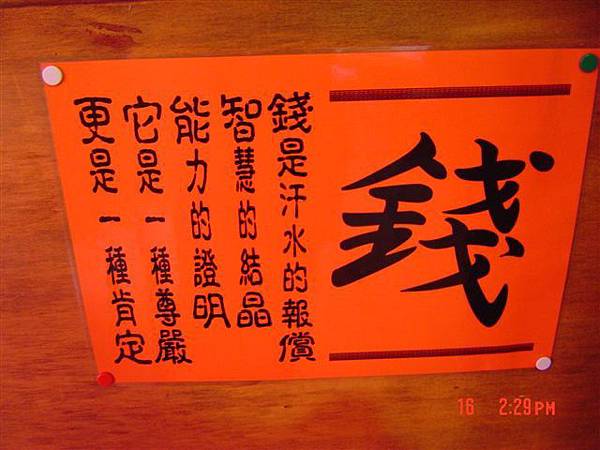 錢
錢是汗水的報償
智慧的結晶
能力的證明
它是一種尊嚴
更是一種肯定
16 2:29PM